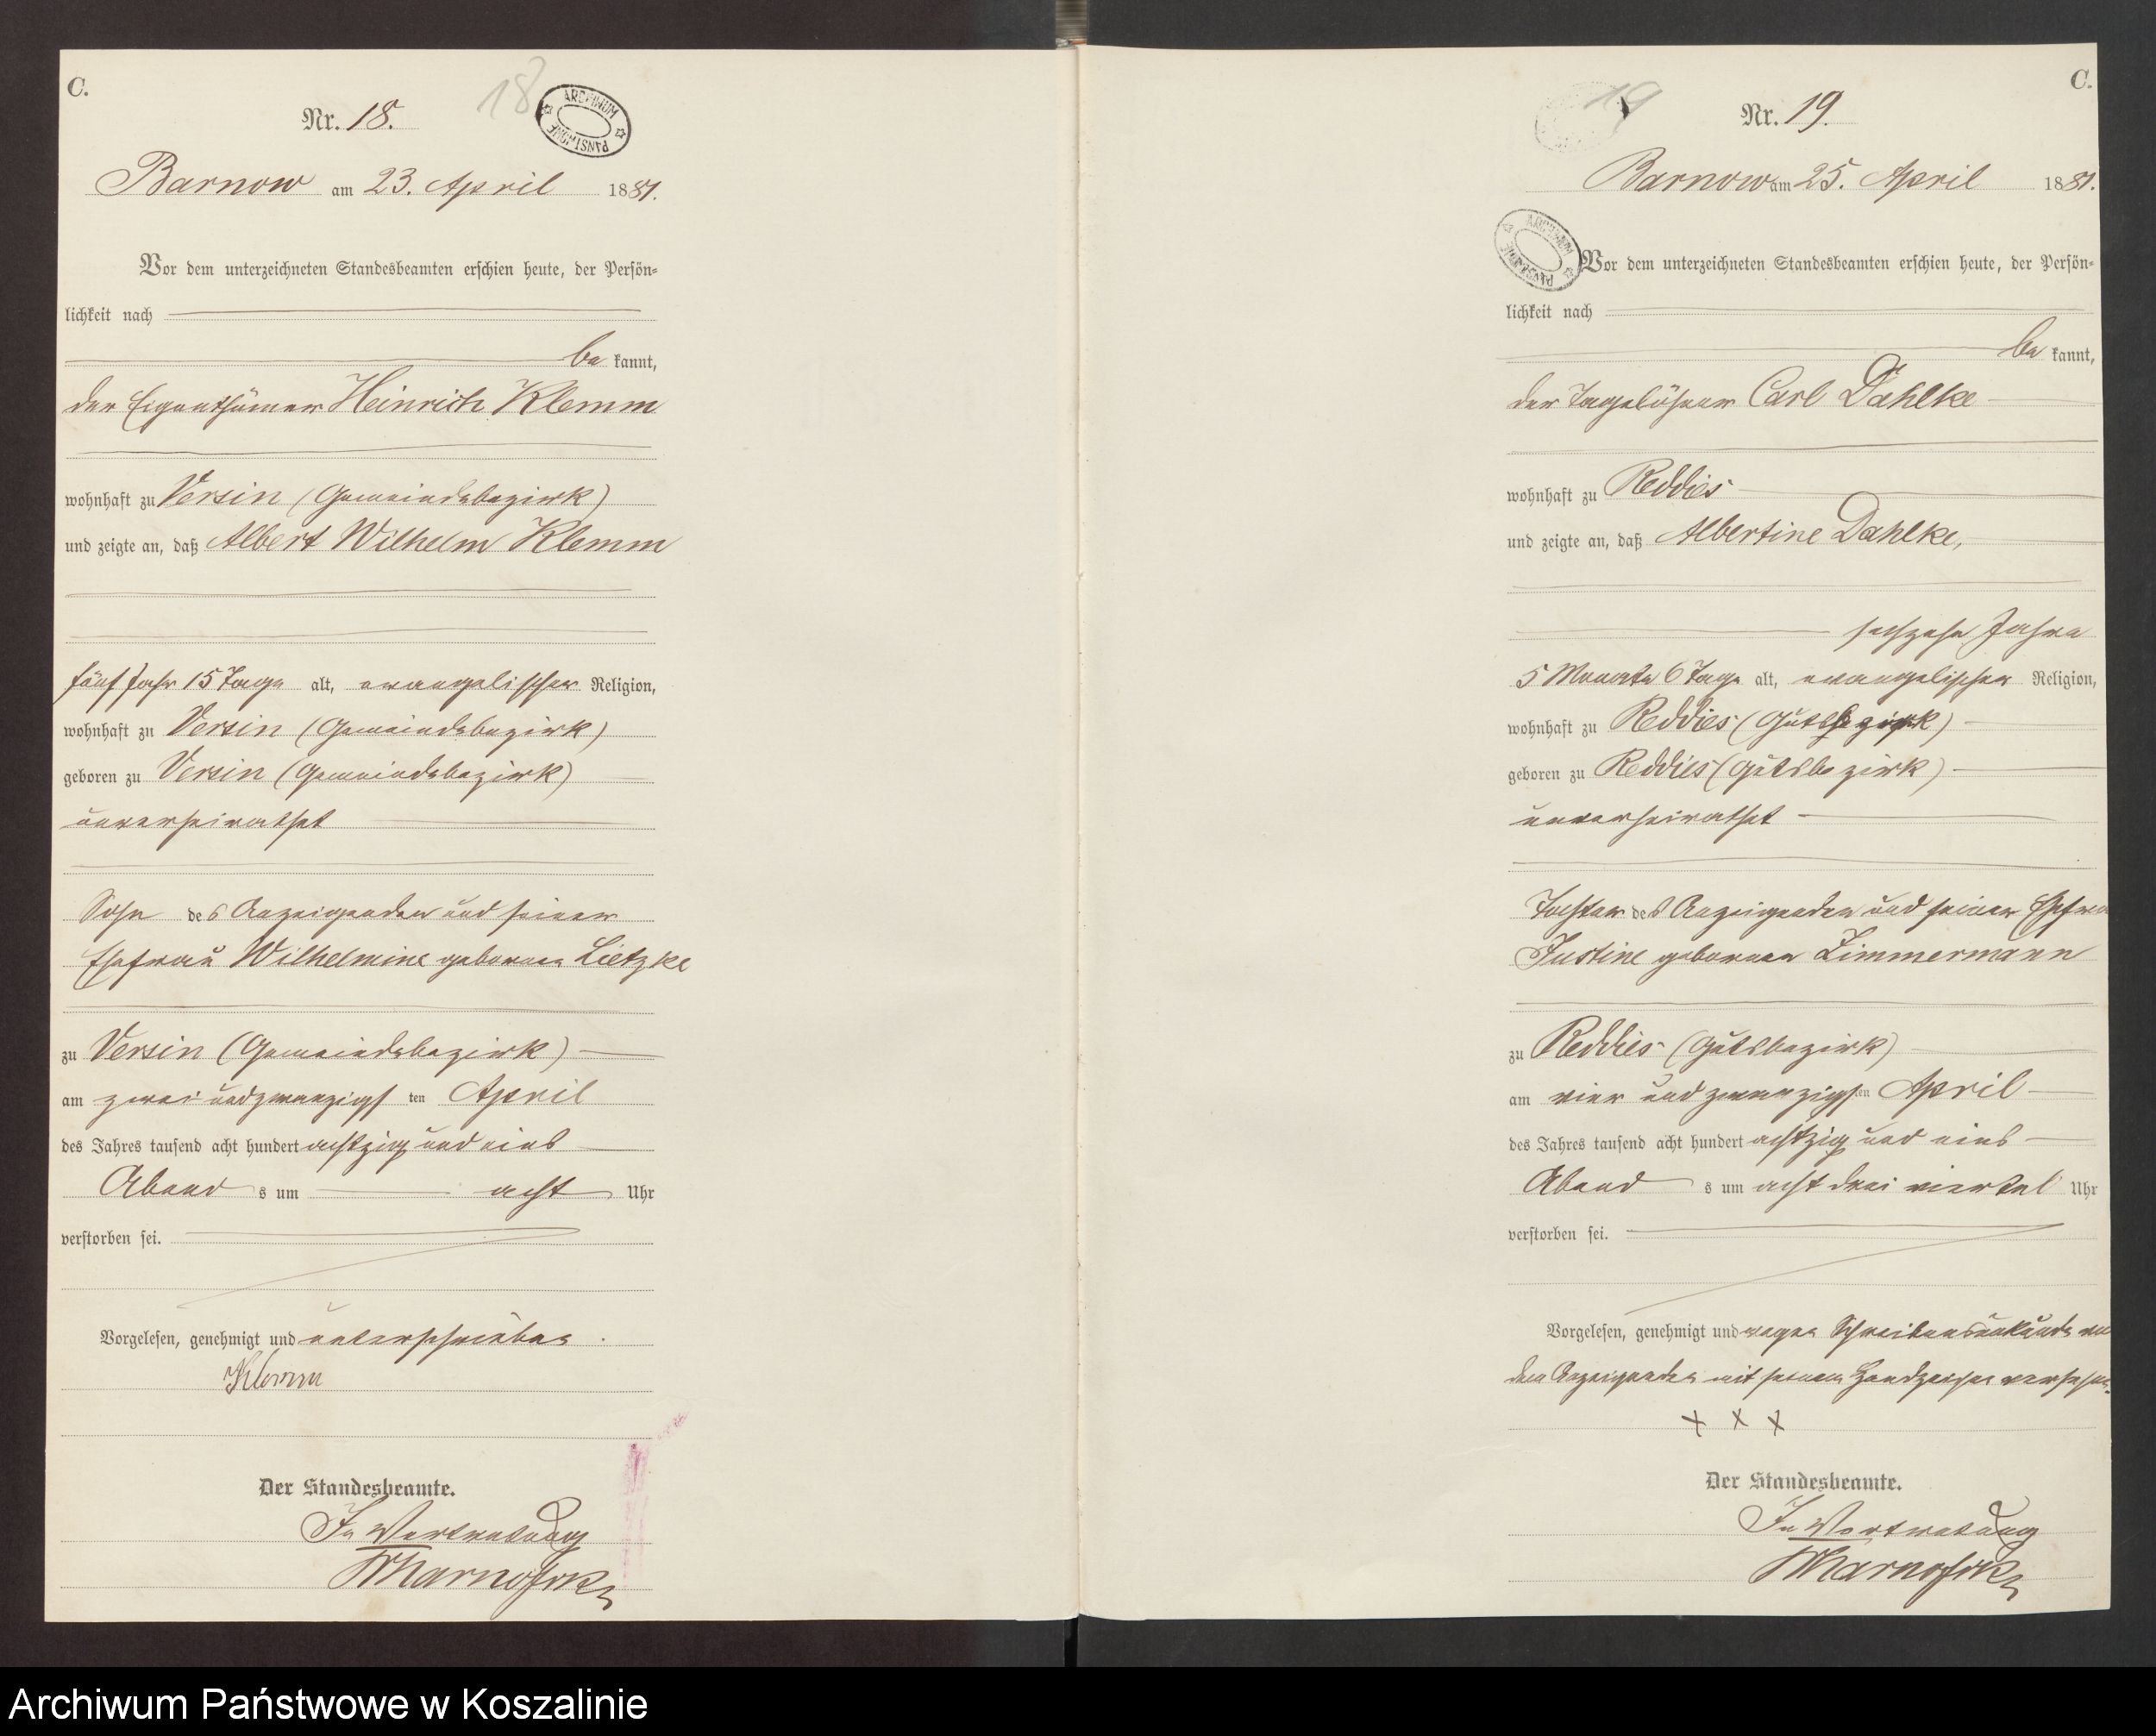 C.
18
ARCHIWUM PAŃSTWOWE
Nr. 18.
Barnow am 23. April 1881.
Vor dem unterzeichneten Standesbeamten erschien heute, der Persön=
lichkeit nach
be kannt,
der Eigenthümer Heinrich Klemm
wohnhaft zu Versin (Gemeindebezirk)
und zeigte an, daß Albert Wilhelm Klemm
fünf Jahr 15 Tage alt, evangelischer Religion,
wohnhaft zu Versin (Gemeindebezirk)
geboren zu Versin (Gemeindebezirk)
unverheirathet
Sohn des Anzeigenden und seiner
Ehefrau Wilhelmine geborenen Lietzke
zu Versin (Gemeindebezirk)
am zwei und zwanzigsten April
des Jahres tausend acht hundert achtzig und eins
Abends um acht Uhr
verstorben sei.
Vorgelesen, genehmigt und unterschrieben.
Klemm
Der Standesbeamte.
In Vertretung
C.
19
Nr. 19.
Barnow am 25. April 1881.
ARCHIWUM PAŃSTWOWE
Vor dem unterzeichneten Standesbeamten erschien heute, der Persön=
lichkeit nach
be kannt,
der Tagelöhner Carl Dahlke
wohnhaft zu Reddies
und zeigte an, daß Albertine Dahlke,
sechzehn Jahre
5 Monate 6 Tage alt, evangelischer Religion,
wohnhaft zu Reddies (Gutsbezirk)
geboren zu Reddies (Gutsbezirk)
unverheirathet
Tochter des Anzeigenden und seiner Ehefrau
Justine geborenen Zimmermann
zu Reddies (Gutsbezirk)
am vier und zwanzigsten April
des Jahres tausend acht hundert achtzig und eins
Abends um acht drei viertel Uhr
verstorben sei.
Vorgelesen, genehmigt und wegen Schreibensunkunde von
dem Anzeigenden mit seinem Handzeichen versehen.
x x x
Der Standesbeamte.
In Vertretung
Archiwum Państwowe w Koszalinie